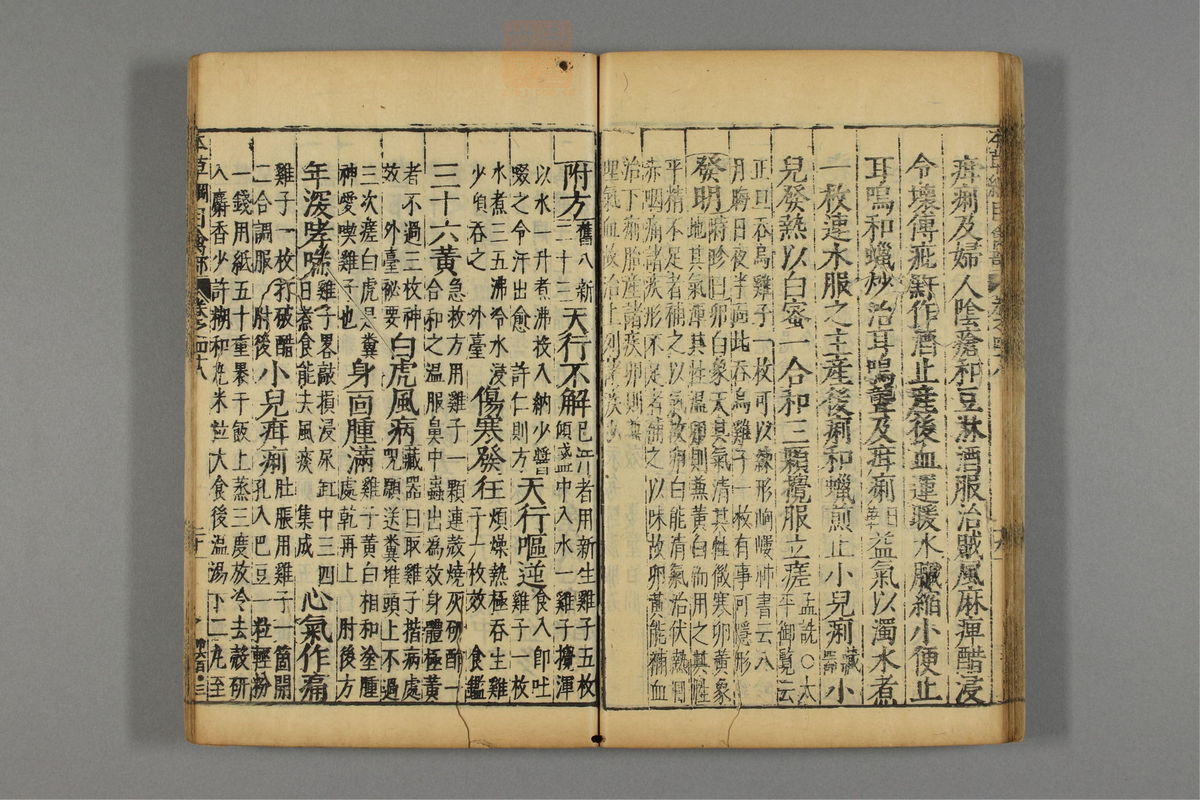 疳痢及婦人陰瘡和豆淋酒服治賊風麻痺醋浸
令壞傅疵䵟作酒止產後血運暖水臟縮小便止
耳鳴和蠟炒治耳鳴聾及疳痢日華益氣以濁水煮
一枚連水服之主產後痢和蠟煎止小兒痢藏器小
兒發熱以白蜜一合和三顆攪服立瘥孟詵○太平御覽云
正旦吞烏雞子一枚可以練形岣嶁神書云八
月晦日夜半面北吞烏雞子一枚有事可隱形
發明時珍曰卵白象天其氣清其性微寒卵黃象
地其氣渾其性溫卵則兼黃白而用之其性
平精不足者補之以氣故卵白能清氣治伏熱目
赤咽痛諸疾形不足者補之以味故卵黃能補血
治下痢胎產諸疾卵則兼
理氣血故治上列諸疾也
附方舊八新二十三天行不解已汗者用新生雞子五枚
傾盞中入水一雞子攪渾
以水一升煮沸投入納少醬
啜之令汗出愈 許仁則方天行嘔逆食入即吐
雞子一枚
水煮三五沸冷水浸
少頃吞之 外臺傷寒發狂煩燥熱極吞生雞
子一枚效 食鑑
三十六黃急救方用雞子一顆連殼燒灰研酢一
合和之溫服鼻中蟲出為效身體極黃
者不過三枚神
效 外臺秘要白虎風病藏器曰取雞子揩病處
咒願送糞堆頭上不過
三次瘥白虎是糞
神愛喫雞子也身面腫滿雞子黃白相和塗腫
處乾再上 肘後方
年深哮喘雞子畧敲損浸尿缸中三四
日煮食能去風痰 集成心氣作痛
雞子一枚打破醋
二合調服 肘後小兒疳痢肚脹用雞子一箇開
孔入巴豆一粒輕粉
一錢用紙五十重裹于飯上蒸三度放冷去殼研
入麝香少許糊和丸米粒大食後溫湯下二丸至
本草綱目禽部 卷之四十八